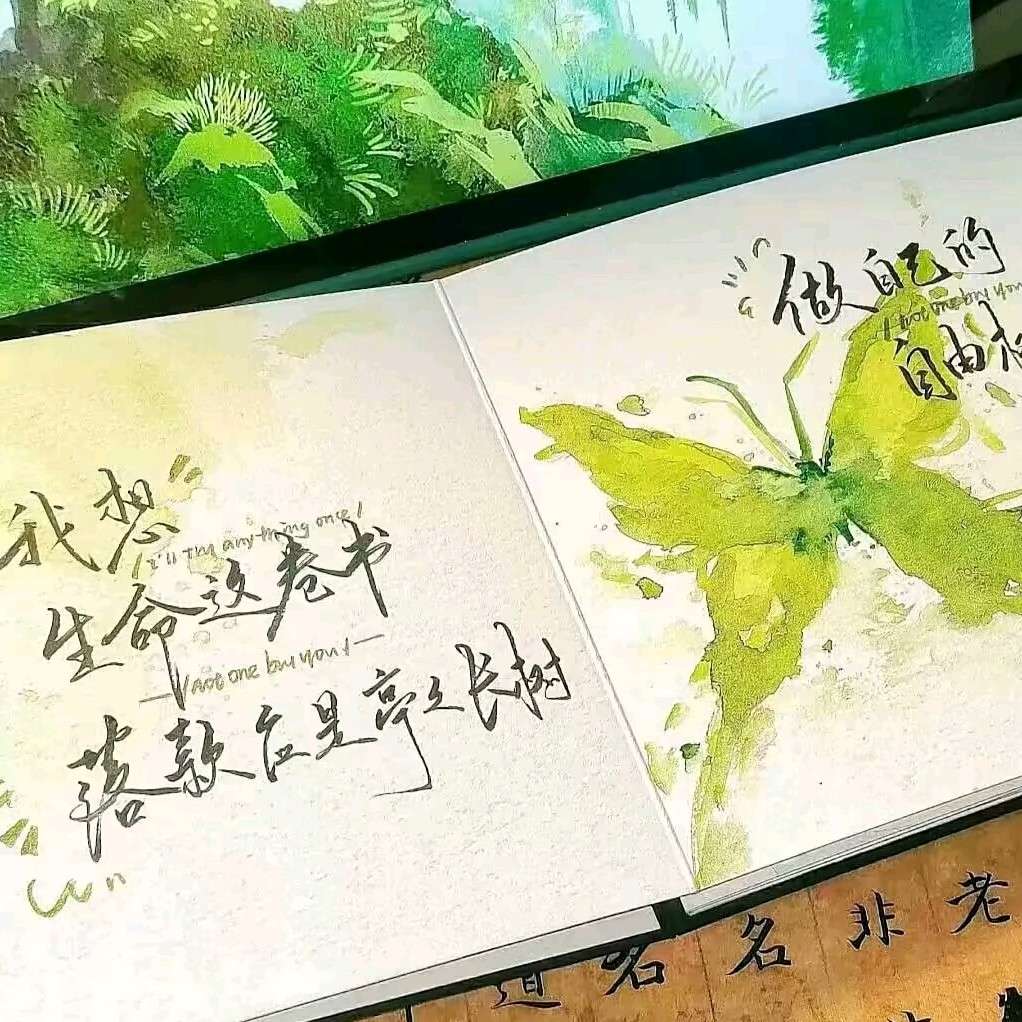 我想
I'll try anything once!
生命这卷书
not one but you!
落款应是亭亭长树
做自己的
not one but you
自由
老
非
名
名
道